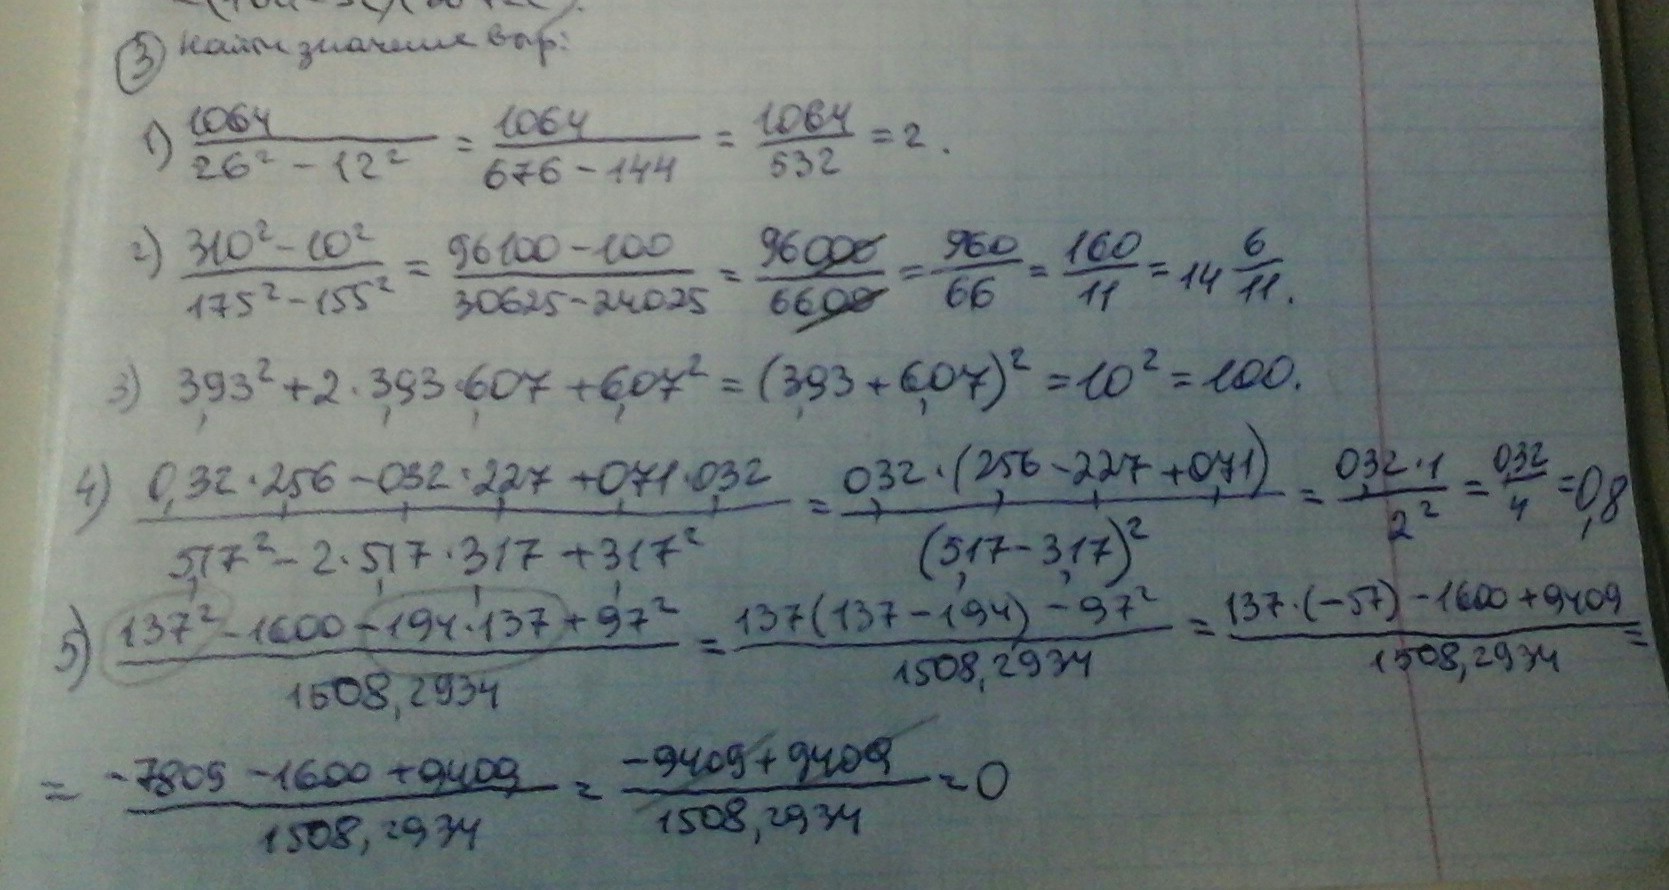 ③ Найти значение выр:
1) 1064/(26² - 12²) = 1064/(676 - 144) = 1064/532 = 2.
2) (310² - 10²)/(175² - 155²) = (96100 - 100)/(30625 - 24025) = 96000/6600 = 960/66 = 160/11 = 14 6/11.
3) 3,93² + 2 · 3,93 · 6,07 + 6,07² = (3,93 + 6,07)² = 10² = 100.
4) (0,32 · 2,56 - 0,32 · 2,27 + 0,71 · 0,32)/(5,17² - 2 · 5,17 · 3,17 + 3,17²) = (0,32 · (2,56 - 2,27 + 0,71))/(5,17 - 3,17)² = (0,32 · 1)/2² = 0,32/4 = 0,8
5) (137² - 1600 - 194 · 137 + 97²)/1508,2934 = (137(137 - 194) - 97²)/1508,2934 = (137 · (-57) - 1600 + 9409)/1508,2934 =
= (-7809 - 1600 + 9409)/1508,2934 = (-9409 + 9409)/1508,2934 = 0